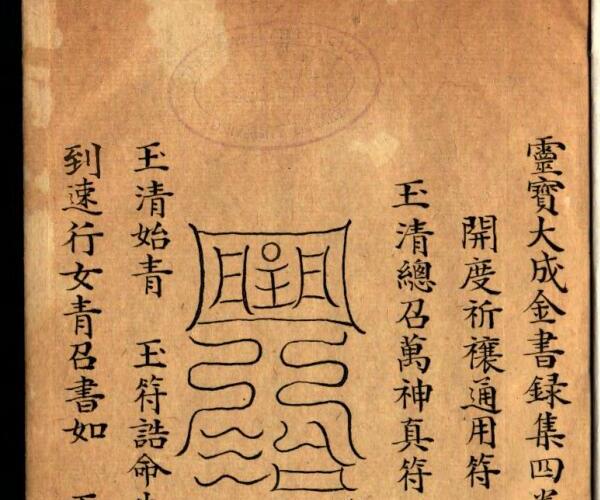 靈寶大成金書録集四
開度祈禳通用符
玉清總召萬神真符
玉清始青 玉符誥命
到速行女青召書如